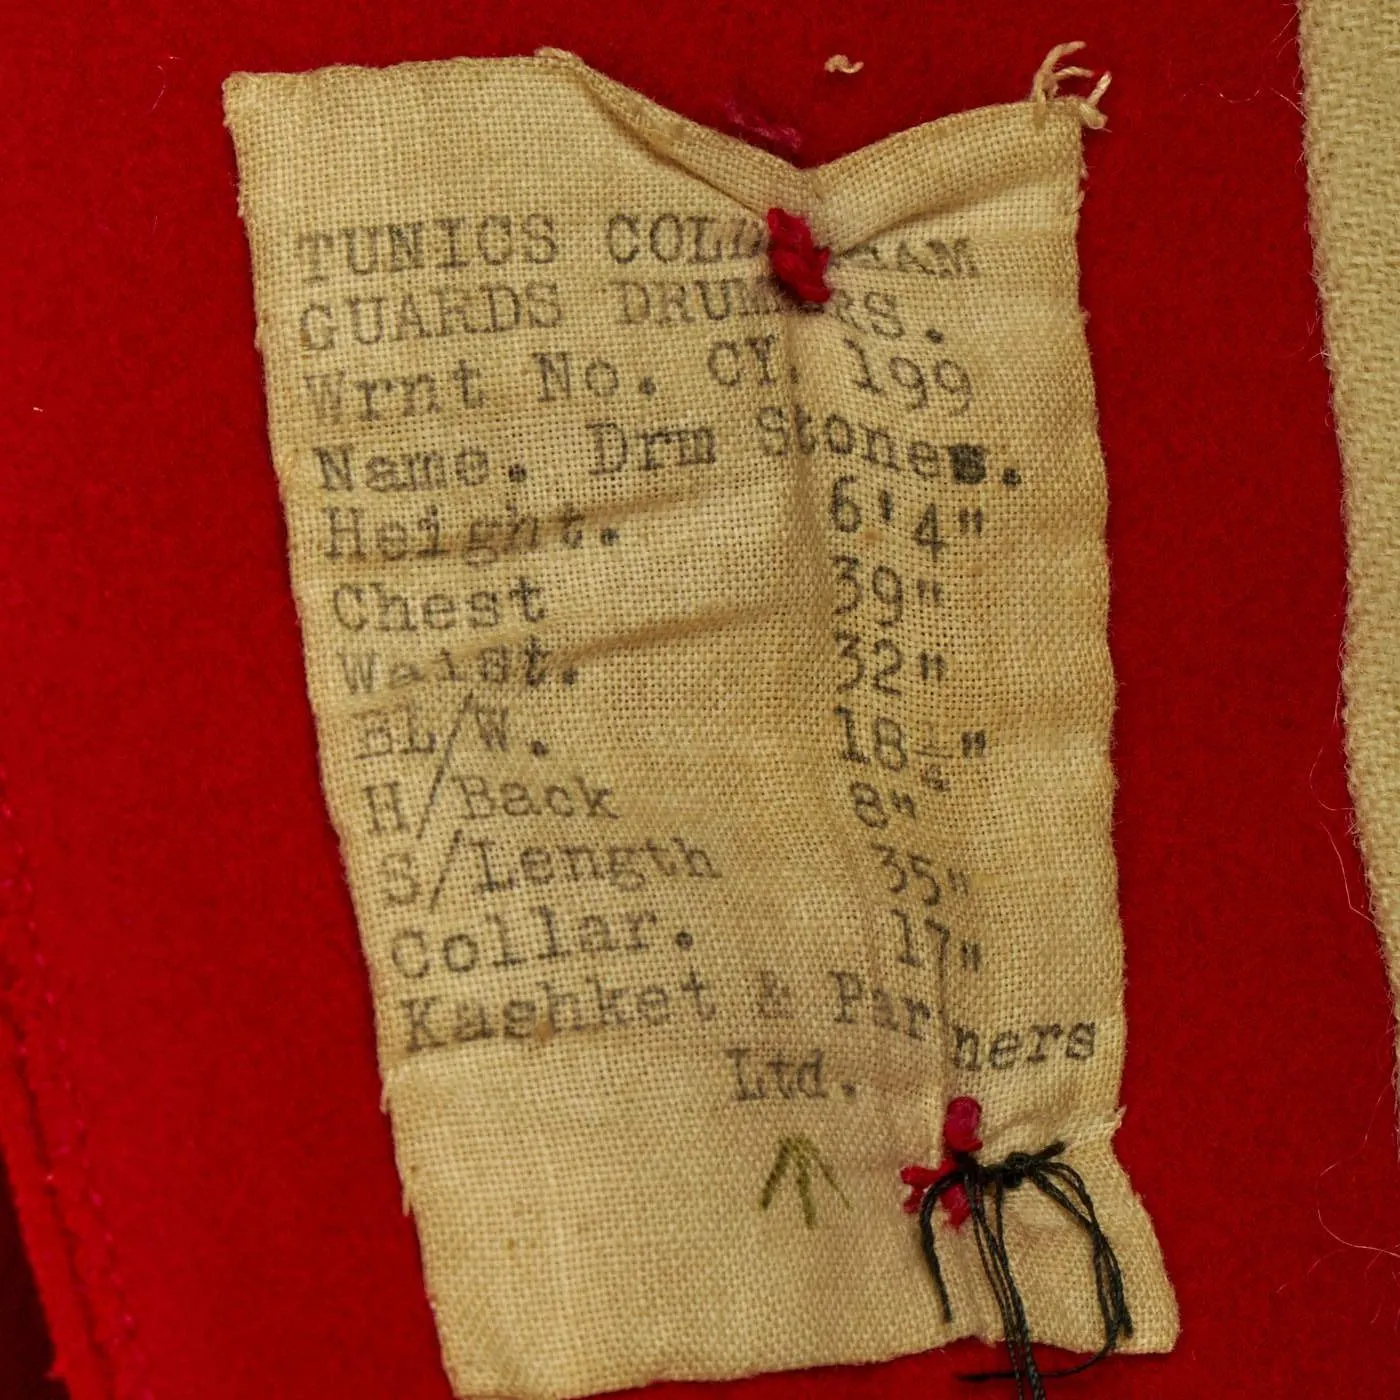 TUNICS COLDSTREAM
GUARDS DRUMMERS.
Wrnt No. CY. 199
Name. Drm Stones.
Height. 6'4"
Chest 39"
Waist. 32"
BL/W. 18¼"
H/Back 8"
S/Length 35"
Collar. 17"
Kashket & Partners
Ltd.